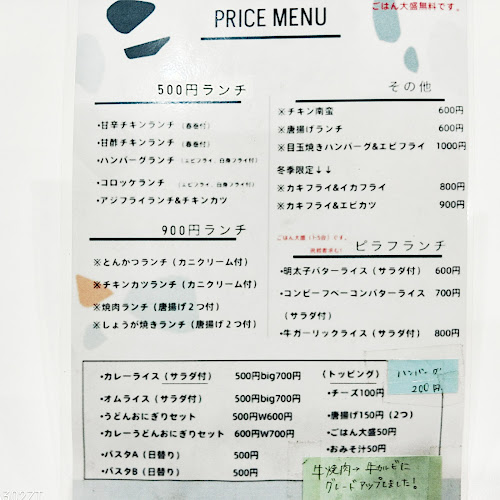 PRICE MENU
ごはん大盛無料です。
500円ランチ
・甘辛チキンランチ（春巻付）
・甘酢チキンランチ（春巻付）
・ハンバーグランチ（エビフライ、白身フライ付）
・コロッケランチ（エビフライ、白身フライ付）
・アジフライランチ&チキンカツ
900円ランチ
※とんかつランチ（カニクリーム付）
※チキンカツランチ（カニクリーム付）
※焼肉ランチ（唐揚げ２つ付）
※しょうが焼きランチ（唐揚げ２つ付）
その他
※チキン南蛮 600円
※唐揚げランチ 600円
※目玉焼きハンバーグ&エビフライ 1000円
冬季限定↓↓
※カキフライ&イカフライ 800円
※カキフライ&エビカツ 900円
ごはん大盛
ピラフランチ
・明太子バターライス（サラダ付） 600円
・コンビーフベーコンバターライス 700円
（サラダ付）
・牛ガーリックライス（サラダ付） 800円
・カレーライス（サラダ付） 500円big700円
・オムライス（サラダ付） 500円big700円
・うどんおにぎりセット 500円W600円
・カレーうどんおにぎりセット 600円W700円
・パスタA（日替り） 500円
・パスタB（日替り） 500円
（トッピング）
・チーズ100円
・唐揚げ150円（2つ）
・ごはん大盛50円
・おみそ汁50円
ハンバーグ
200円
牛焼肉→牛カルビに
グレードアップしました!